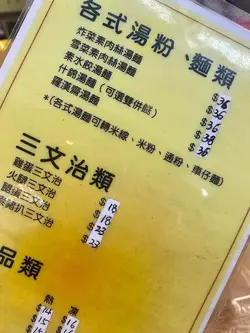 各式湯粉、麵類
炸菜素肉絲湯麵 $36
雪菜素肉絲湯麵 $36
素水餃湯麵 $36
什錦湯麵（可選雙併餸） $38
羅漢齋湯麵 $36
*(各式湯麵可轉米線、米粉、通粉、瀨仔麵)
三文治類
雞蛋三文治 $18
火腿三文治 $18
餐蛋三文治 $23
素豬扒三文治 $23
品類
熱 凍
$14 $16
$15 $16